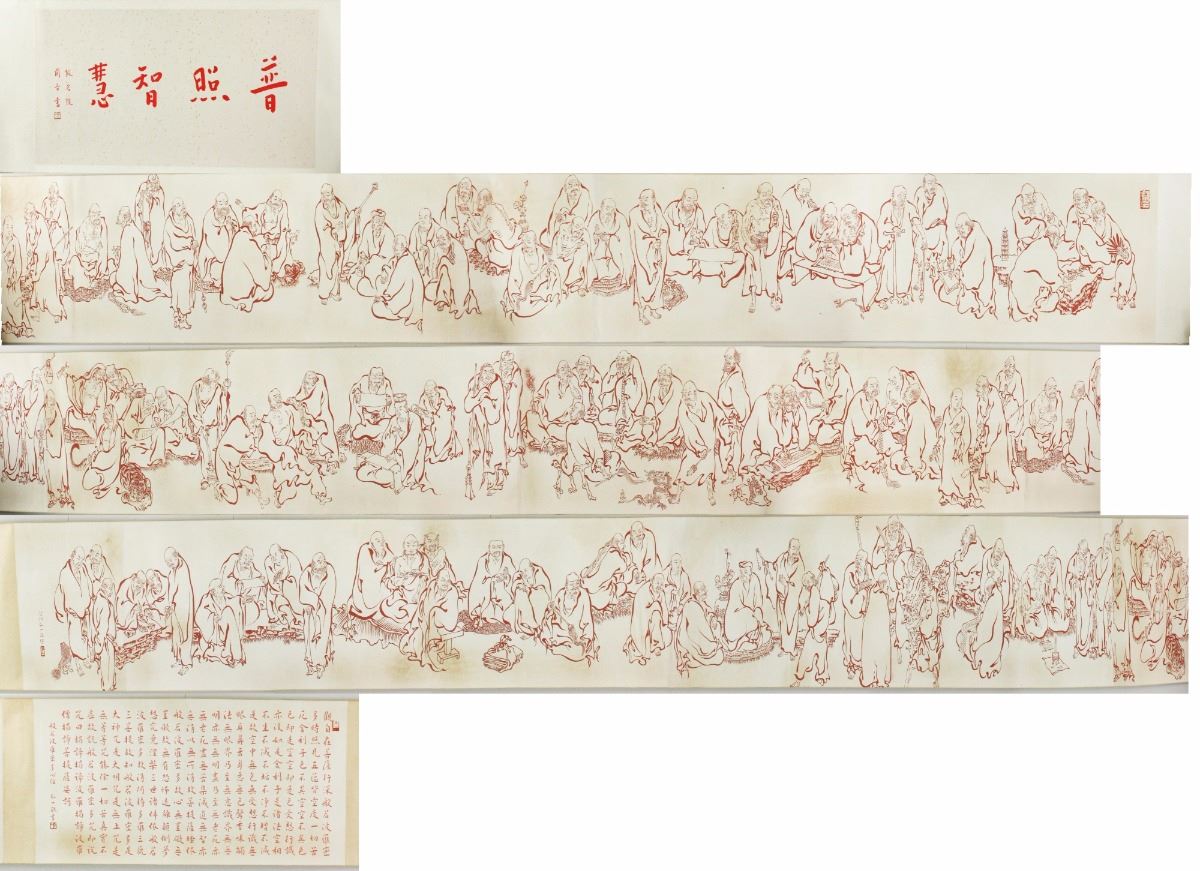 普照智慧
觀自在菩薩行深般若波羅密
多時照見五蘊皆空度一切苦
厄舍利子色不異空空不異色
色即是空空即是色受想行識
亦復如是舍利子是諸法空相
不生不滅不垢不淨不增不減
是故空中無色無受想行識無
眼耳鼻舌身意無色聲香味觸
法無眼界乃至無意識界無無
明亦無無明盡乃至無老死亦
無老死盡無苦集滅道無智亦
無得以無所得故菩提薩埵依
般若波羅密多故心無罣礙無
罣礙故無有恐怖遠離顛倒夢
想究竟涅槃三世諸佛依般若
波羅密多故得阿耨多羅三藐
三菩提故知般若波羅密多是
大神咒是大明咒是無上咒是
無等等咒能除一切苦真實不
虛故說般若波羅密多咒即說
咒曰揭諦揭諦波羅揭諦波羅
僧揭諦菩提薩婆訶
般若波羅密多心經